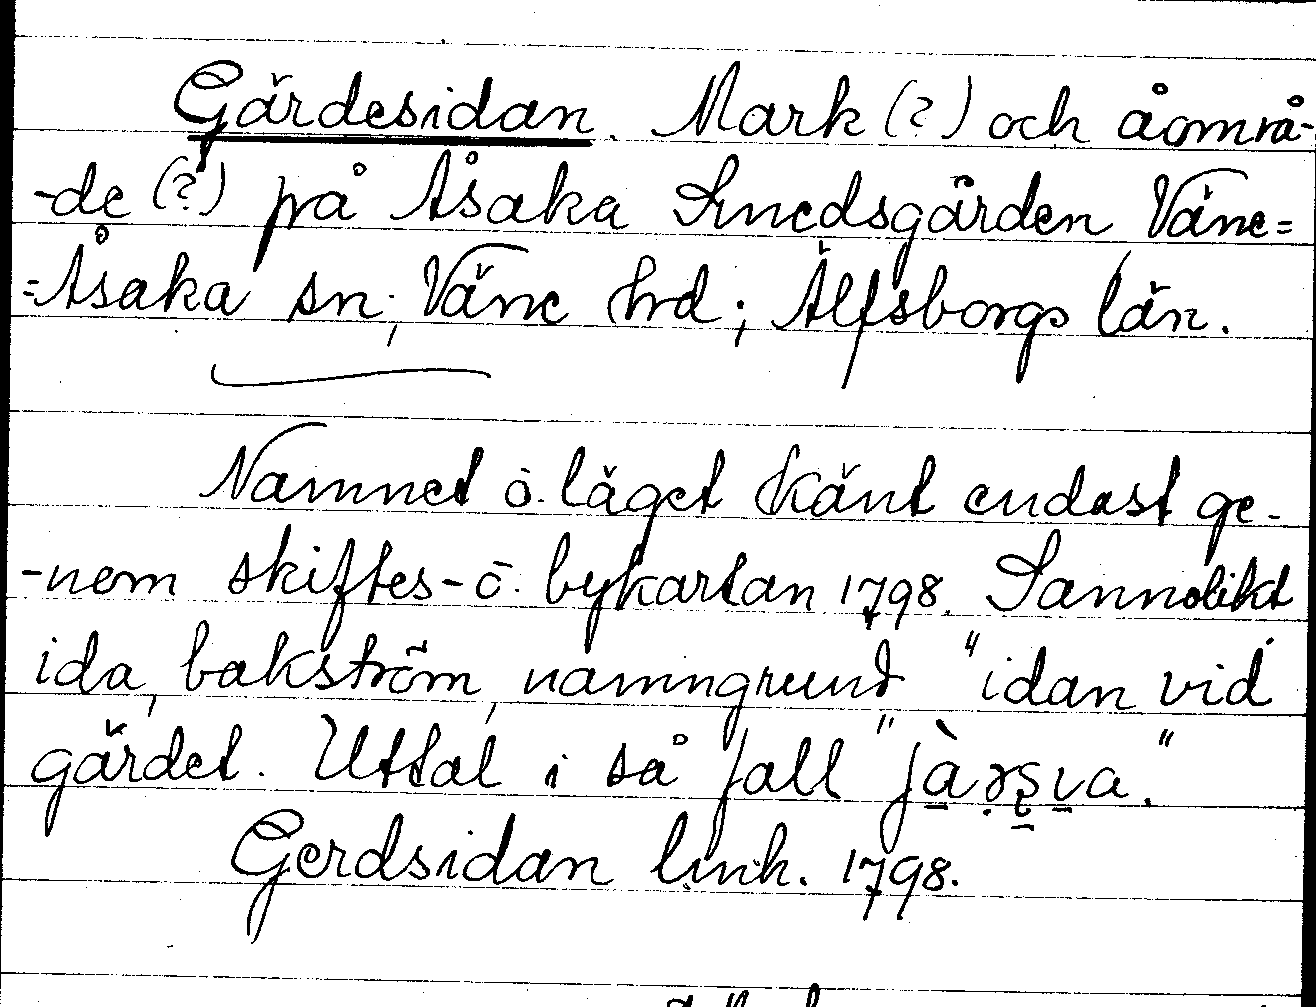 Gärdesidan. Mark (?) och åområ-
-de (?) på Åsaka Smedsgården Väne=
=Åsaka sn; Väne hrd; Älfsborgs län.
Namnet o. läget känt endast ge-
-nom skiftes- o. bykartan 1798. Sannolikt
ida, bakström, namngrund "idan vid
gärdet. Uttal i så fall "
Gerdsidan link. 1798.